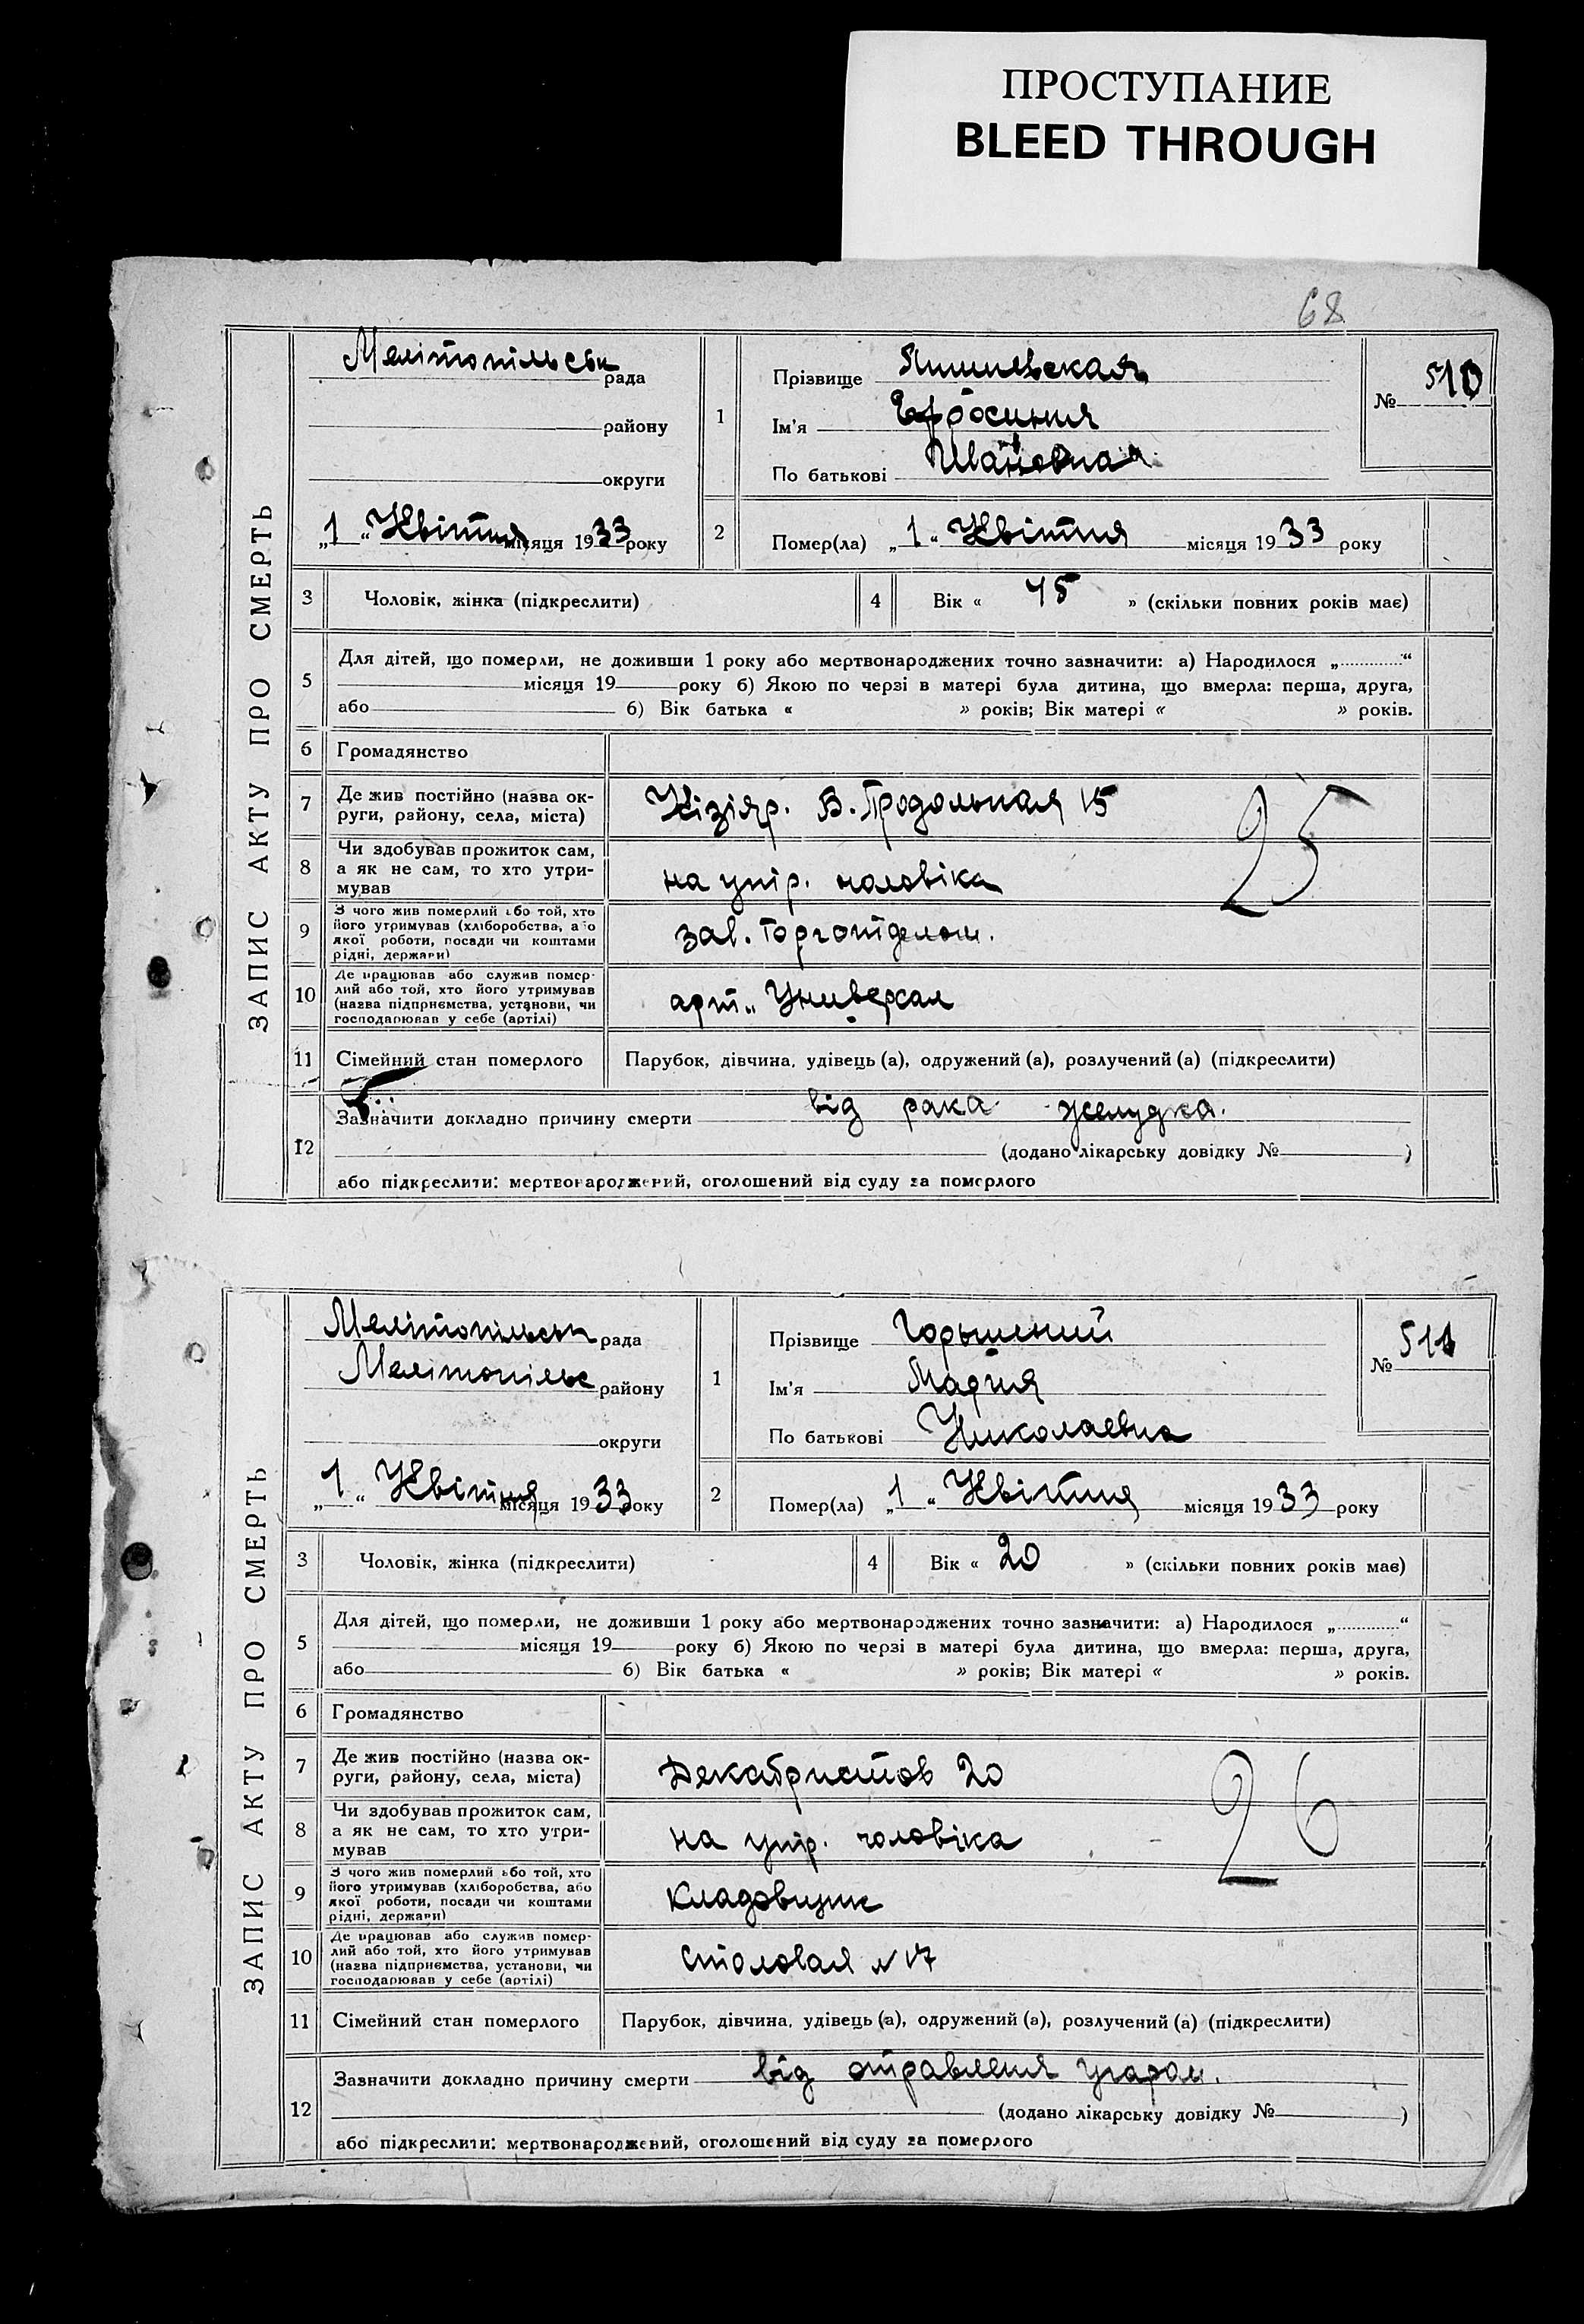 ПРОСТУПАНИЕ
BLEED THROUGH
68
ЗАПИС АКТУ ПРО СМЕРТЬ
Мелітопільськ рада
району
округи
„1“ Квітня місяця 1933 року
1
Прізвище
Ім'я Ефросиния
По батькові Ивановна
№ 510
2
Помер(ла) „1“ Квітня місяця 1933 року
3 Чоловік, жінка (підкреслити)
4 Вік « 45 » (скільки повних років має)
5
Для дітей, що померли, не доживши 1 року або мертвонароджених точно зазначити: а) Народилося „............“
місяця 19 року б) Якою по черзі в матері була дитина, що вмерла: перша, друга,
або б) Вік батька « » років; Вік матері « » років.
6 Громадянство
7 Де жив постійно (назва ок-
руги, району, села, міста)
Кізіяр. В. Продольная 15
25
8 Чи здобував прожиток сам,
а як не сам, то хто утри-
мував
на утр. чоловіка
9 З чого жив померлий або той, хто
його утримував (хліборобства, або
якої роботи, посади чи коштами
рідні, держави)
зав. торготделом.
10 Де працював або служив помер-
лий або той, хто його утримував
(назва підприємства, установи, чи
господарював у себе (артілі)
арт.
11 Сімейний стан померлого
Парубок, дівчина, удівець (а), одружений (а), розлучений (а) (підкреслити)
12
Зазначити докладно причину смерти від рака желудка.
(додано лікарську довідку № )
або підкреслити: мертвонароджений, оголошений від суду за померлого
ЗАПИС АКТУ ПРО СМЕРТЬ
Мелітопільськ рада
Мелітопільс району
округи
„1“ Квітня місяця 1933 року
1
Прізвище
Ім'я Мария
По батькові Николаевна
№ 511
2
Помер(ла) „1“ Квітня місяця 1933 року
3 Чоловік, жінка (підкреслити)
4 Вік « 20 » (скільки повних років має)
5
Для дітей, що померли, не доживши 1 року або мертвонароджених точно зазначити: а) Народилося „............“
місяця 19 року б) Якою по черзі в матері була дитина, що вмерла: перша, друга,
або б) Вік батька « » років; Вік матері « » років.
6 Громадянство
7 Де жив постійно (назва ок-
руги, району, села, міста)
Декабристов 20
26
8 Чи здобував прожиток сам,
а як не сам, то хто утри-
мував
на утр. чоловіка
9 З чого жив померлий або той, хто
його утримував (хліборобства, або
якої роботи, посади чи коштами
рідні, держави)
Кладовщик
10 Де працював або служив помер-
лий або той, хто його утримував
(назва підприємства, установи, чи
господарював у себе (артілі)
Столовая № 17
11 Сімейний стан померлого
Парубок, дівчина, удівець (а), одружений (а), розлучений (а) (підкреслити)
12
Зазначити докладно причину смерти від отравления угаром.
(додано лікарську довідку № )
або підкреслити: мертвонароджений, оголошений від суду за померлого